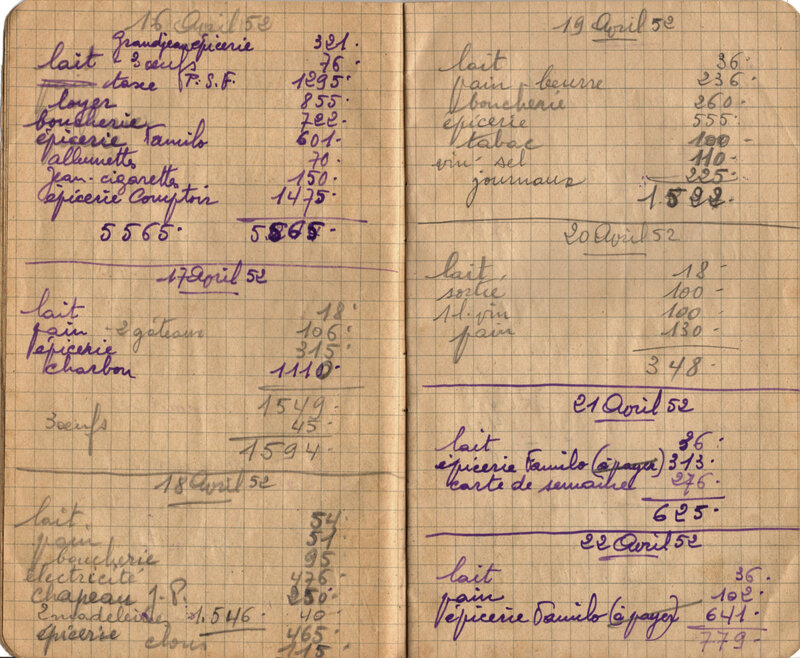 16 Avril 52
Grandjean épicerie 321.
lait - 3 œufs 76.
taxe P.S.F. 1295.
loyer 855.
boucherie 722.
épicerie Familo 601.
allumettes 70.
Jean-cigarettes 150.
épicerie Comptoir 1475.
5565. 5565.
17 Avril 52
lait 18.
pain - 2 gâteaux 106.
épicerie 315.
charbon 1110.
1549.
3 œufs 45.
1594.
18 Avril 52
lait 54.
pain 51.
boucherie 95.
électricité 476.
chapeau J.P. 250.
2 madeleines 1.546. 40.
épicerie 465.
clous 115.
19 Avril 52
lait 36.
pain - beurre 236.
boucherie 260.
épicerie 555.
tabac 100.
vin - sel 110.
journaux 225.
1522.
20 Avril 52
lait 18.
sortie 100.
1 l. vin 100.
pain 130.
348.
21 Avril 52
lait 36.
épicerie Familo (à payer) 313.
carte de semaine 276.
625.
22 Avril 52
lait 36.
pain 102.
épicerie Familo (à payer) 641.
779.